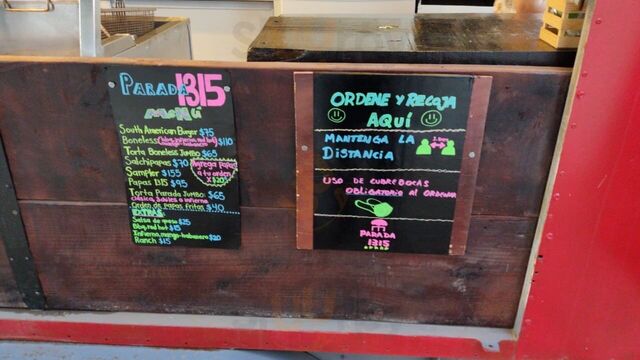 PARADA 1315
MENÚ
South American Burger $75
Boneless $110
Torta Boneless Jumbo $65
Salchipapas $70
Sampler $155
Papas 1315 $95
Agrega Papas
a tu orden
x $20
Torta Parada Jumbo $65
Orden de papas fritas $40
EXTRAS:
Salsa de queso $25
Bbq, red hot $15
Infierno, mango-habanero $20
Ranch $15
ORDENE Y RECOJA
AQUÍ
MANTENGA LA
DISTANCIA
USO DE CUBREBOCAS
OBLIGATORIO AL ORDENAR
PARADA
1315